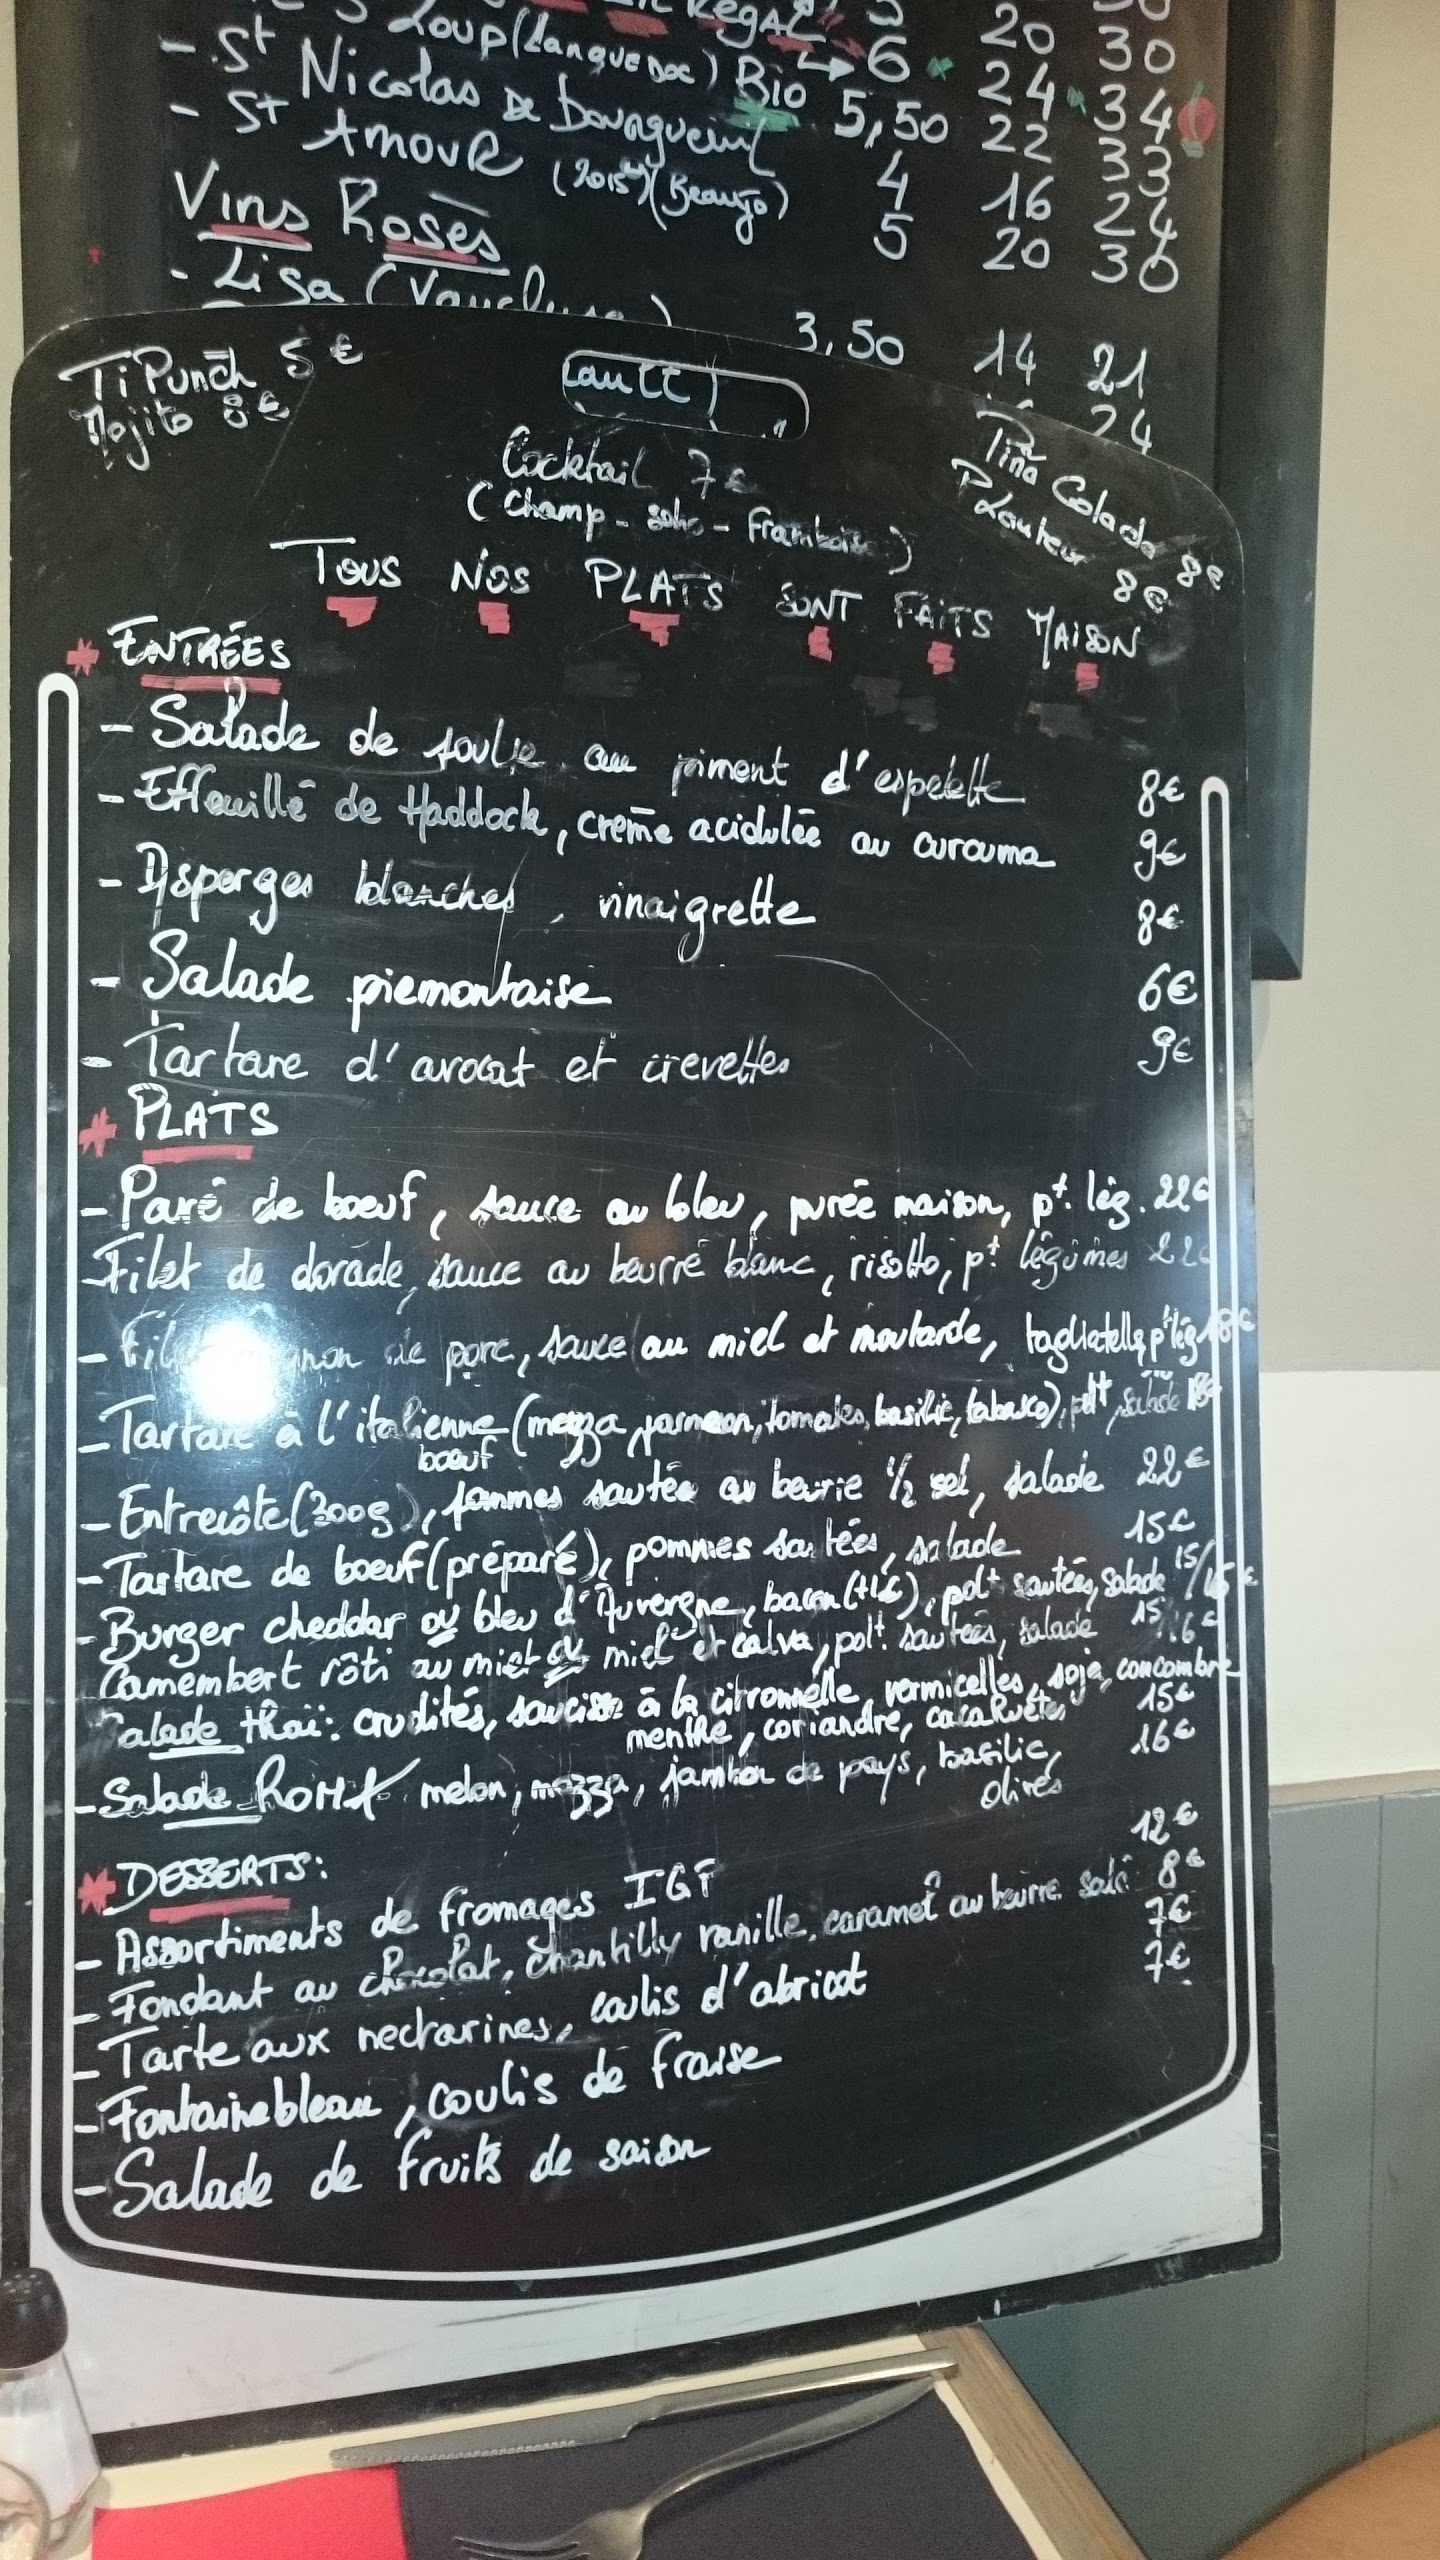 Régal 5 20 30
Loup (Languedoc) → 6 24 34
- St Nicolas de Bourgueil Bio 5,50 22 33
- St Amour (2015) (Beaujo) 4 16 24
5 20 30
Vins Rosés
- Lisa (Vaucluse) 3,50 14 21
24
Ti Punch 5€
Mojito 8€
Cocktail 7€
(Champ - soho - Framboise)
Piña Colada 8€
Planteur 8€
TOUS NOS PLATS SONT FAITS MAISON
* ENTRÉES
- Salade de au piment d'espelette 8€
- Effeuillé de Haddock, crème acidulée au curcuma 9€
- Asperges blanches, vinaigrette 8€
- Salade piemontaise 6€
- Tartare d'avocat et crevettes 9€
* PLATS
- Pavé de boeuf, sauce au bleu, purée maison, pt. lég. 22€
- Filet de dorade, sauce au beurre blanc, risotto, pt légumes 22€
- de porc, sauce au miel et moutarde, tagliatelle, pt lég 18€
- Tartare à l'italienne (mozza, parmesan, tomates, basilic, tabasco), pdt, salade
boeuf
- Entrecôte (300g), pommes sautées au beurre 1/2 sel, salade 22€
- Tartare de boeuf (préparé), pommes sautées, salade 15€
- Burger cheddar ou bleu d'Auvergne, bacon (+1€), pdt sautées, salade 15/15€
Camembert rôti au miel ou miel et calva, pdt. sautées, salade 15/16€
Salade thaï: crudités, saucisse à la citronnelle, vermicelles, soja, concombre
menthe, coriandre, cacahuètes 15€
- Salade ROMA melon, mozza, jambon de pays, basilic, 16€
olives
* DESSERTS:
- Assortiments de fromages IGP 12€
- Fondant au chocolat, chantilly vanille, caramel au beurre salé 8€
- Tarte aux nectarines, coulis d'abricot 7€
- Fontainebleau, coulis de fraise 7€
- Salade de fruits de saison